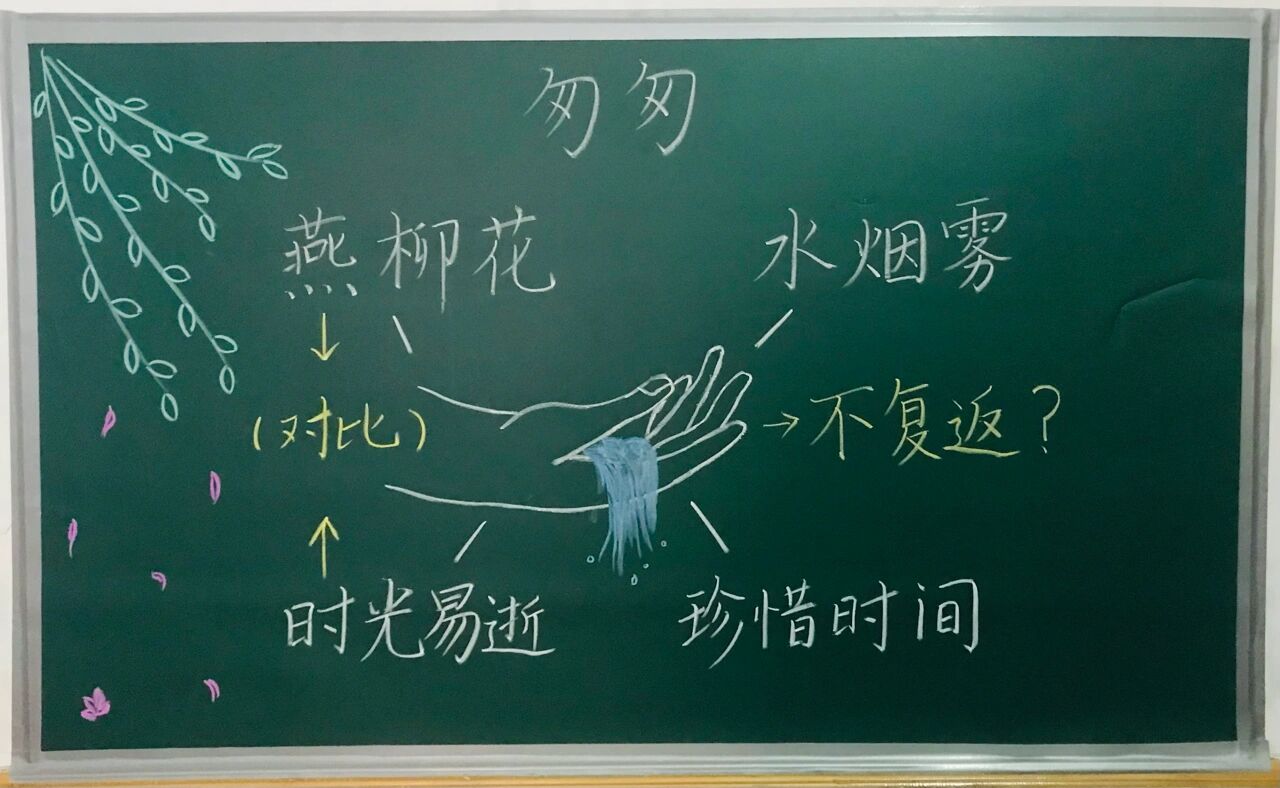 匆匆
燕柳花 水烟雾
(对比) →不复返?
时光易逝 珍惜时间